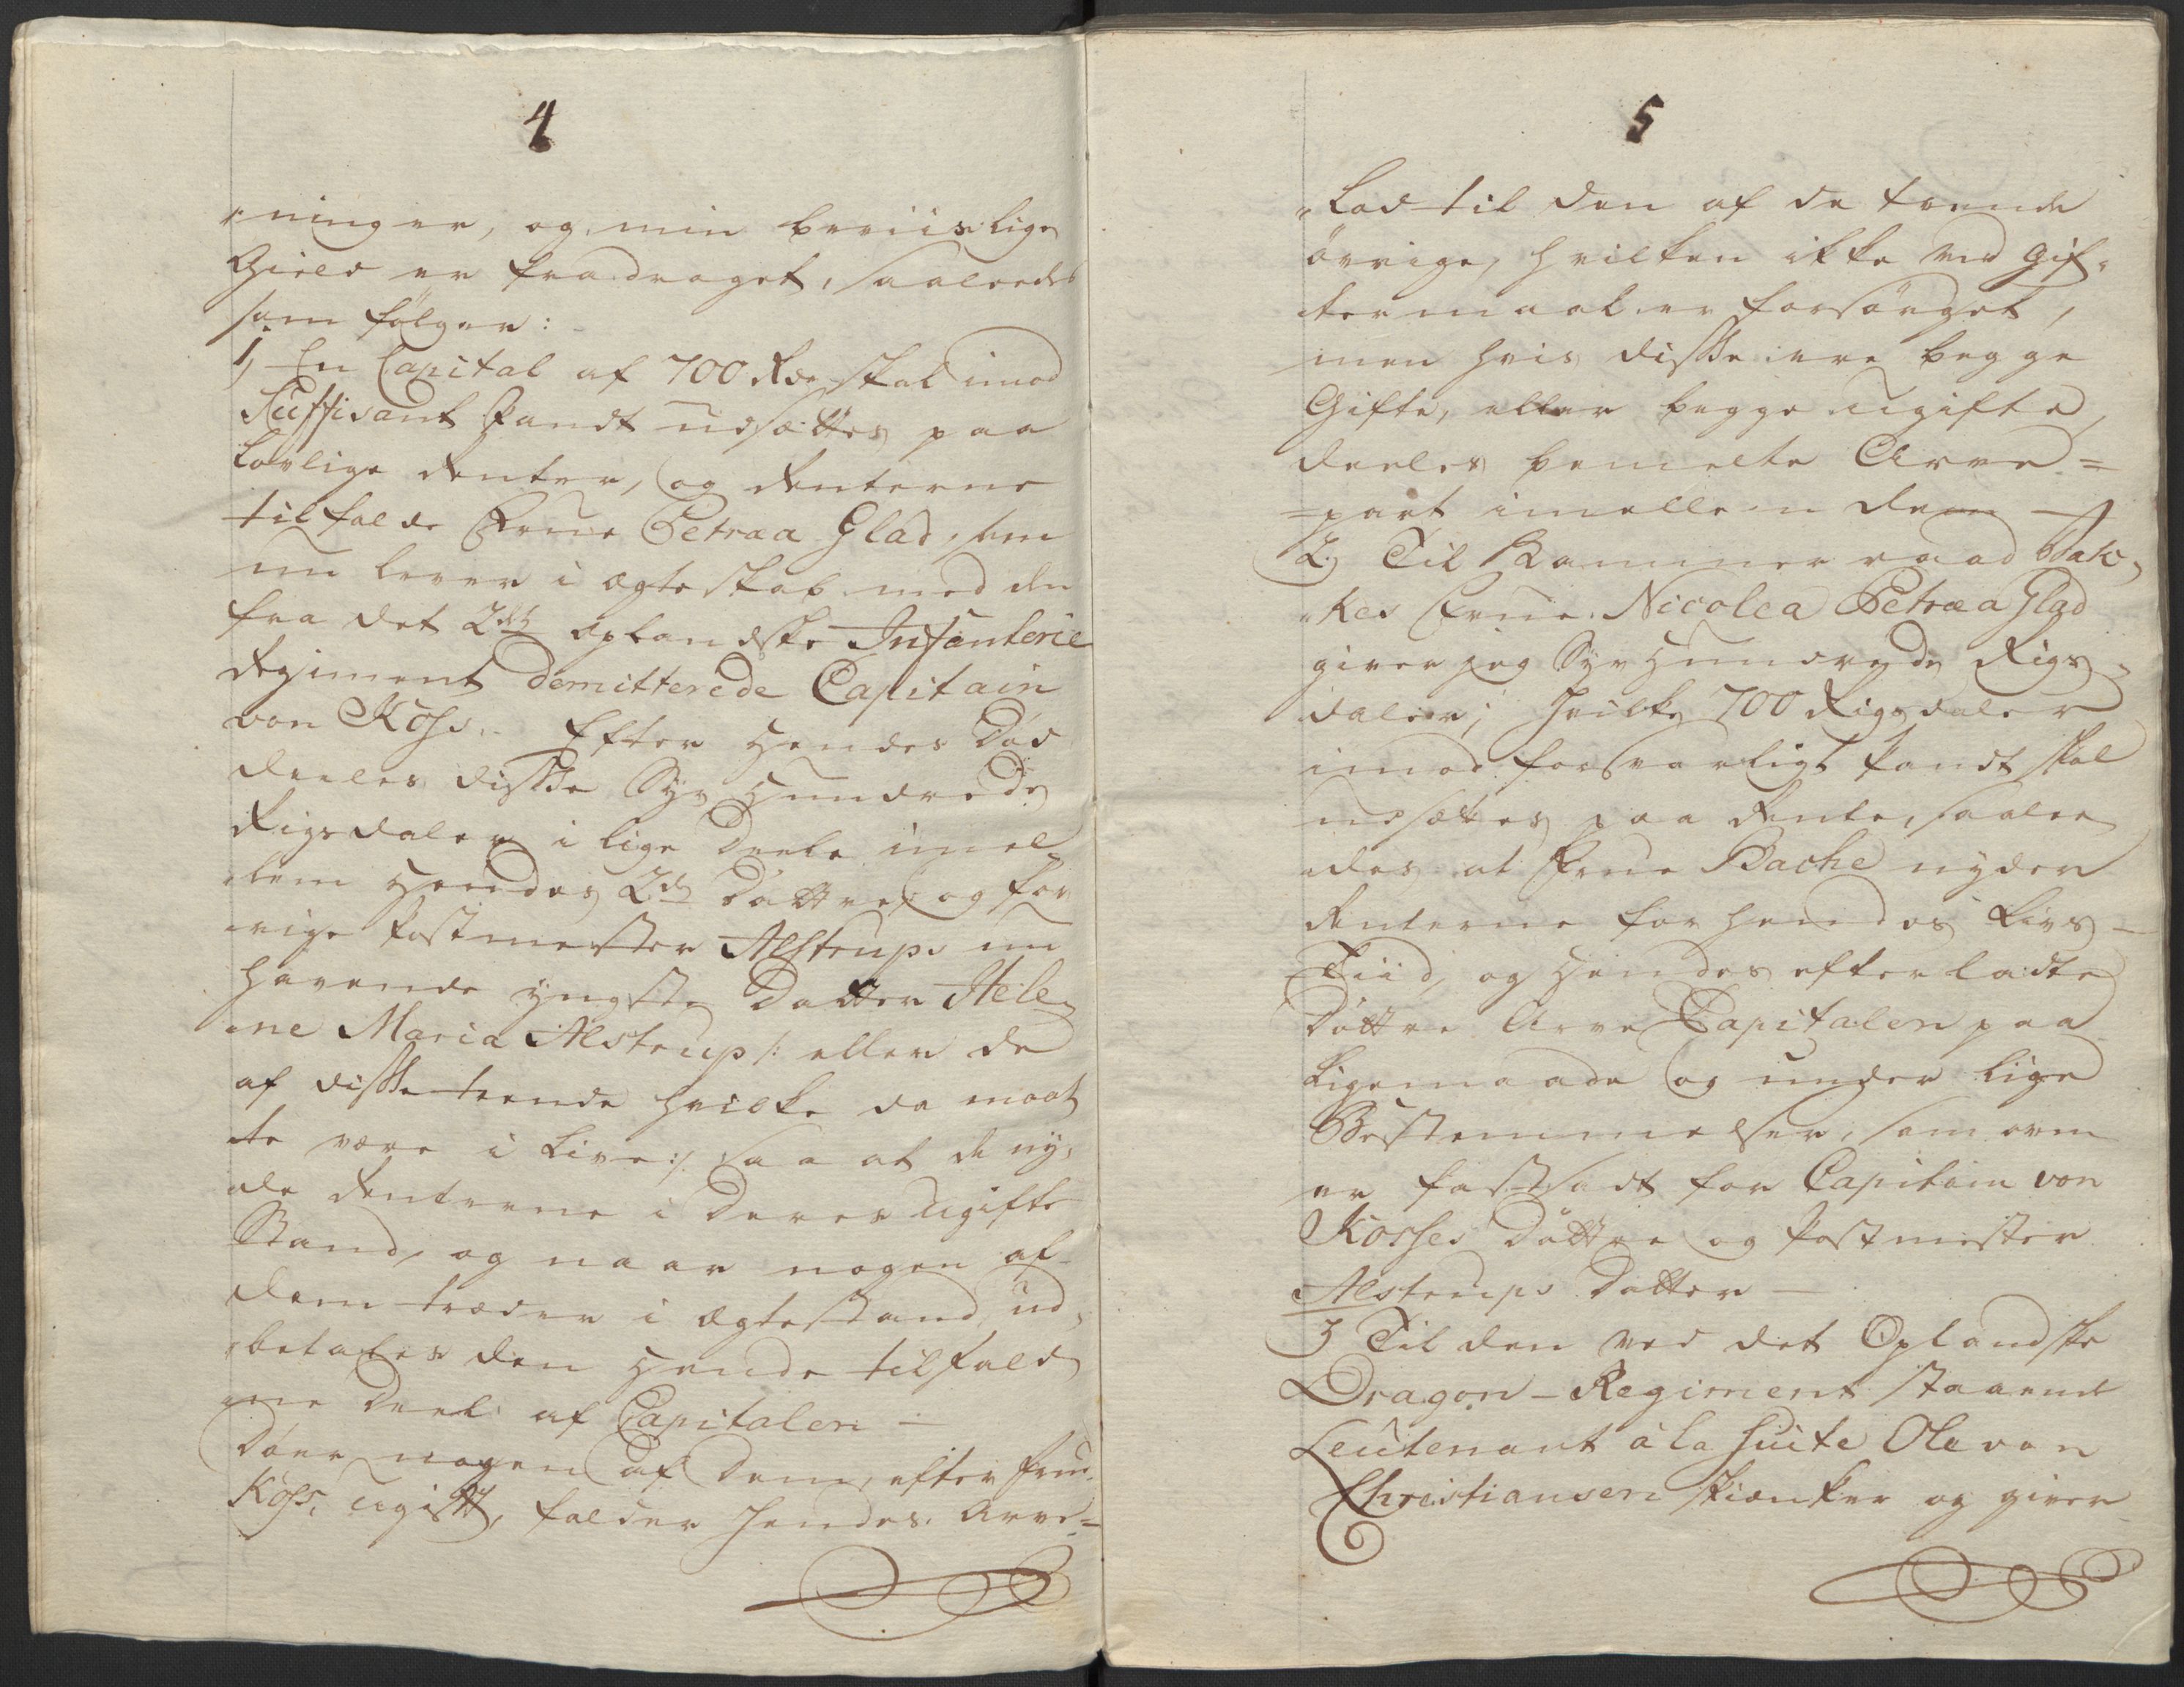 4
"ninger, og min beviislige
Gield er fradraget, saaledes
som følger:
1, En Capital af 700 Rdr skal imod
Suffisant Pandt udsættes paa
lovlige Renter, og Renterne
tilfalde Frue Petræa Glad, som
nu lever i ægteskab med den
fra det 2det Oplandske Infanterie
Regiment demitterede Capitain
von Koss. Efter Hendes Død
deeles disse Syv Hundrede
Rigsdaler i lige Deele imel-
lem Hendes 2de Døttre, og for
rige Postmester Alstrups nu
havende yngste Datter Hele-
"ne Maria Alstrup /: eller de
af disse trende hvilke da maat
te være i Live :/ saa at de ny,
de Renterne i Deres ugifte
Stand, og naar nogen af
dem træder i Ægtestand, ud,
"betales den Hende tilfald
ne Deel af Capitalen —
Døer nogen af Dem, efter Frue
Koss, ugift, falder Hendes Arve=
5
"Lod til den af de tvende
øvrige, hvilken ikke ved Gif-
termaal er forsørget,
men hvis disse ere begge
Gifte, eller begge ugifte,
deeles bemelte Arve=
=part imellem dem —
2, Til Kammerraad Bak,
"kes Frue Nicolea Petræa Glad
giver jeg Syv Hundrede Rigs-
daler; Hvilke 700 Rigsdaler
imod forsvarligt Pandt skal
udsættes paa Rente, saalee
des at Frue Bache nyder
Renterne for hendes Livs-
Tiid, og Hendes efterladte
Døttre Arve Capitalen paa
Ligemaade og under lige
Bestemmelser, som oven
er fastsadt for Capitain von
Kosses Døttre og Postmester
Alstrups Datter —
3 Til den ved det Oplandske
Dragon-Regiment staaende
Leutenant à la Suite Ole von
Christiansen skienker og giver